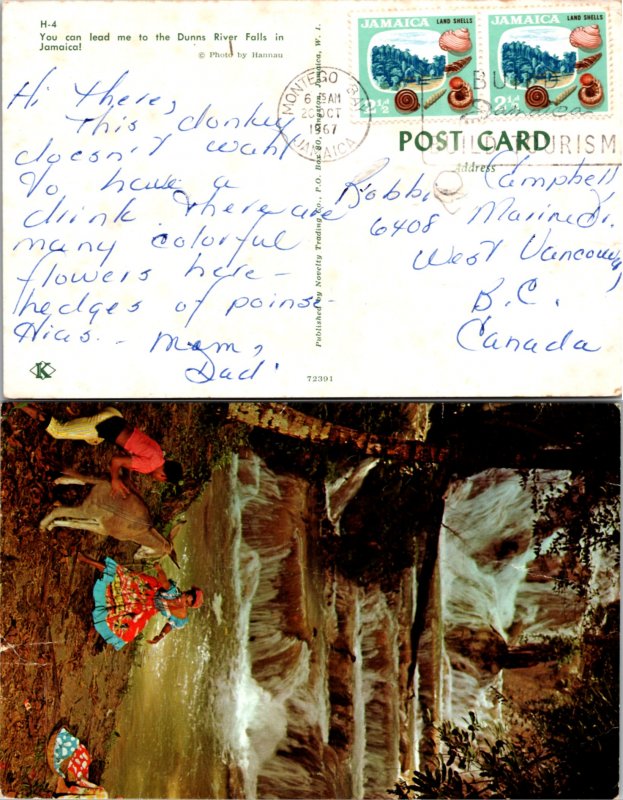 H-4
You can lead me to the Dunns River Falls in
Jamaica!
© Photo by Hannau
Hi there,
This donkey
doesn't want
to have a
drink. There are
many colorful
flowers here -
hedges of poinse-
ttias. - Mom,
Dad
K
72391
Published by Novelty Trading Co., P.O. Box 80, Kingston, Jamaica, W. I.
JAMAICA LAND SHELLS
2½d
JAMAICA LAND SHELLS
2½d
MONTEGO BAY
6 15 AM
OCT
1967
JAMAICA
BUILD
Jamaica
TOURISM
POST CARD
Address
Bobbi Campbell
6408 Marine Dr.
West Vancouver,
B.C.
Canada